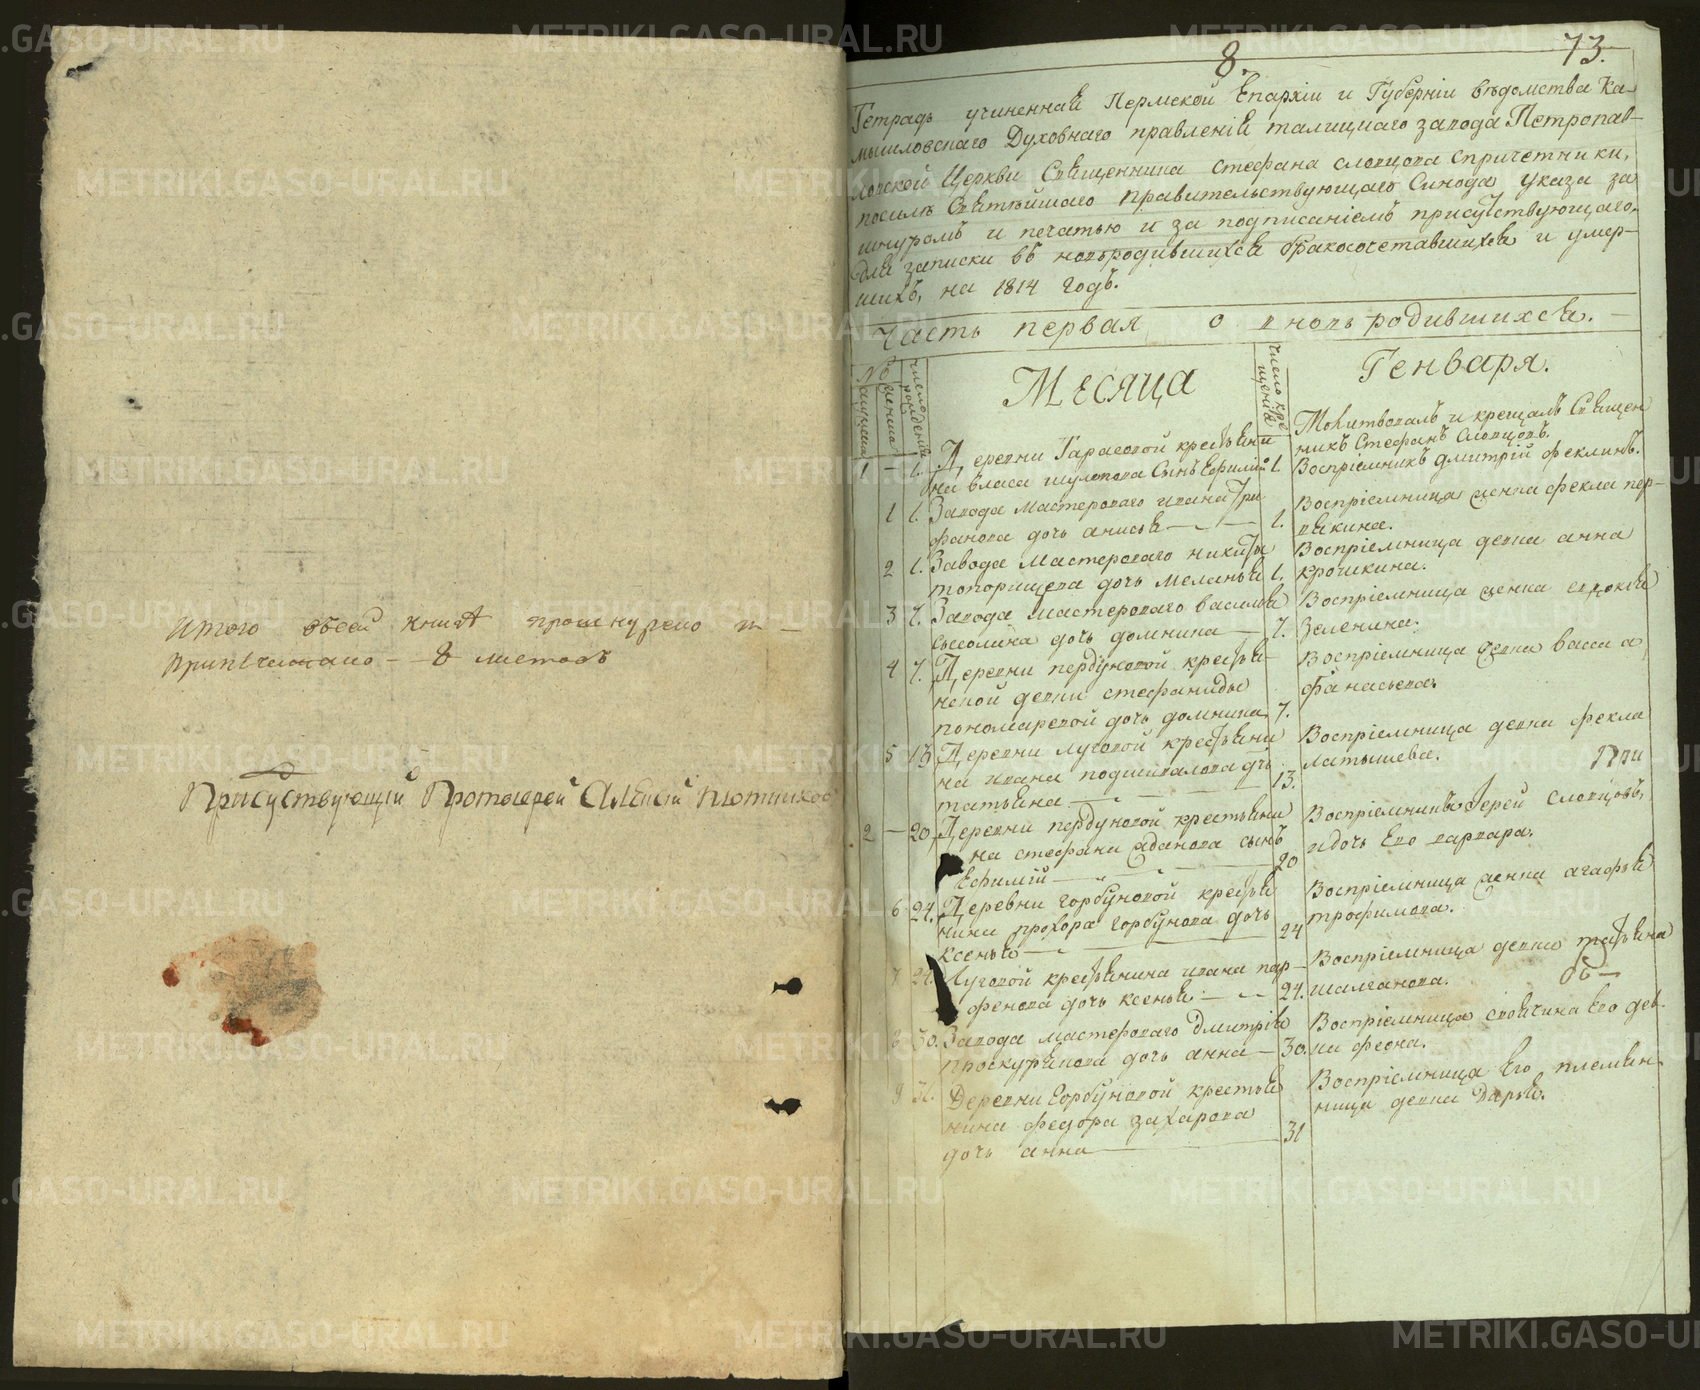 Итого въ сей книге прошнурено и
припечатано – 8 листовъ
Присутствующій Протоіерей Алексій Плотников
8. 73.
Тетрадь учиненная Пермской Епархіи и Губерніи ведомства Ка-
мышловскаго Духовнаго правленія талицкаго завода Петропав-
ловской Церкви Священника стефана словцова спричетники,
посиле Святейшаго правительствующаго Синода указа за
шнуромъ и печатью и за подписаніемъ присутствующаго,
для записки въ новородившихся бракосочетавшихся и умер-
шихъ, на 1814 годъ.
Часть первая о новорродившихся.
№ число рожденія Месяца число кре щенія Генваря.
мущеска женска
Молитвовалъ и крещалъ Священ
никъ Стефанъ Словцовъ.
1 – 1. Деревни Тарасовой крестьяни
на власа шулепова Сынъ Ефимій 1. Воспріемникъ дмитрій феклинъ.
1 1. Завода мастероваго ивана Три
фанова дочь анисья 1. Воспріемница женка фекла пер-
вякина.
2 1. Завода мастероваго никиты
топорищева дочь меланья 1. Воспріемница девка анна
крочикина.
3 7. Завода мастероваго василья
сысолина дочь домника 7. Воспріемница женка евдокія
Зеленина.
4 7. Деревни пердуновой крестья-
нской девки стефаниды
пономаревой дочь домника 7. Воспріемница девка васса а
фанасьева.
5 13 Деревни луговой крестьяни
на ивана подшивалова дчь
татьяна 13. Воспріемница девка фекла
латышева. При
2 – 20. Деревни пердуновой крестьяни
на стефана жданова сынъ
Ефимій 20 Воспріемникъ Іерей словцовъ,
идочь его варвара.
6 24. Деревни горбуновой крестья
нина прохора горбунова дочь
ксенья 24 Воспріемница женка агафья
трофимова.
7 24. Луговой крестьянина ивана пар-
фенова дочь ксенья 24. Воспріемница девка татьяна
шалганова. об
8 30. Завода мастероваго дмитрія
проскурякова дочь анна 30. Воспріемница своячина его дев.
ка феона.
9 31. Деревни Горбуновой крестья
нина федора захарова
дочь анна 31 Воспріемница его племян-
ница девка дарья.
METRIKI.GASO-URAL.RU